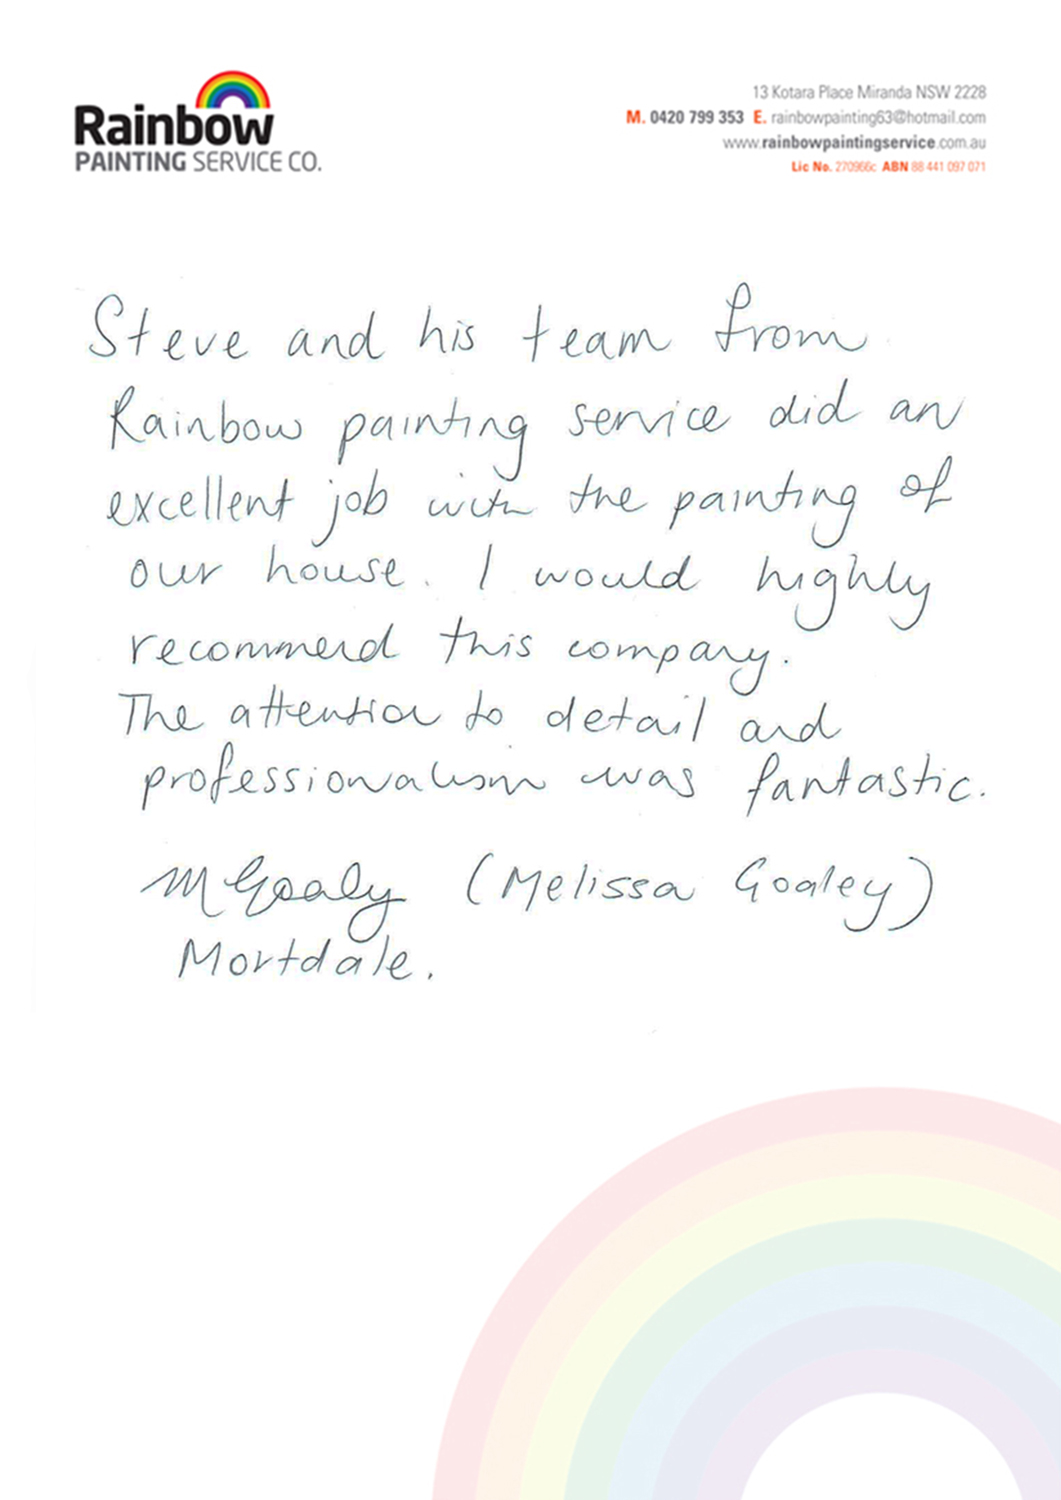 Rainbow
PAINTING SERVICE CO.
13 Kotara Place Miranda NSW 2228
M. 0420 799 353 E. rainbowpainting63@hotmail.com
www.rainbowpaintingservice.com.au
Lic No. 270966c ABN 88 441 097 071
Steve and his team from
Rainbow painting service did an
excellent job with the painting of
our house. I would highly
recommend this company.
The attention to detail and
professionalism was fantastic.
M Goaley (Melissa Goaley)
Mortdale.